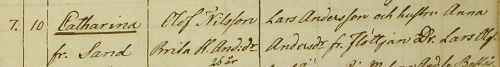 7. 10 Catharina Olof Nilsson Lars Andersson och hustru Anna
fr. Sand Brita K. Andsdr Andersdr fr. Flottjan Dr. Lars Olof
26 år